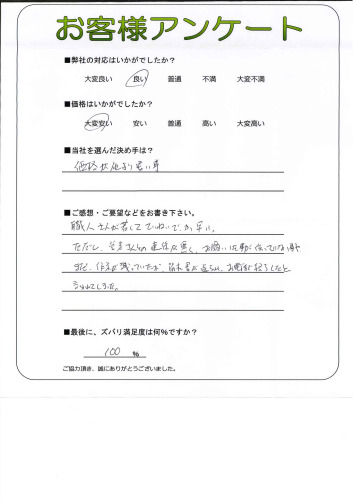 お客様アンケート
■弊社の対応はいかがでしたか？
大変良い 良い 普通 不満 大変不満
■価格はいかがでしたか？
大変安い 安い 普通 高い 大変高い
■当社を選んだ決め手は？
価格が他より安い事
■ご感想・ご要望などをお書き下さい。
職人さんが若くて ていねいで、か 早い。
ただし、 さんの 連係が悪く、お願いした事が伝っていない
まだ、作業が残っていたが、 が 、お電話が 終了したと
言われてしまった。
■最後に、ズバリ満足度は何％ですか？
100 ％
ご協力頂き、誠にありがとうございました。